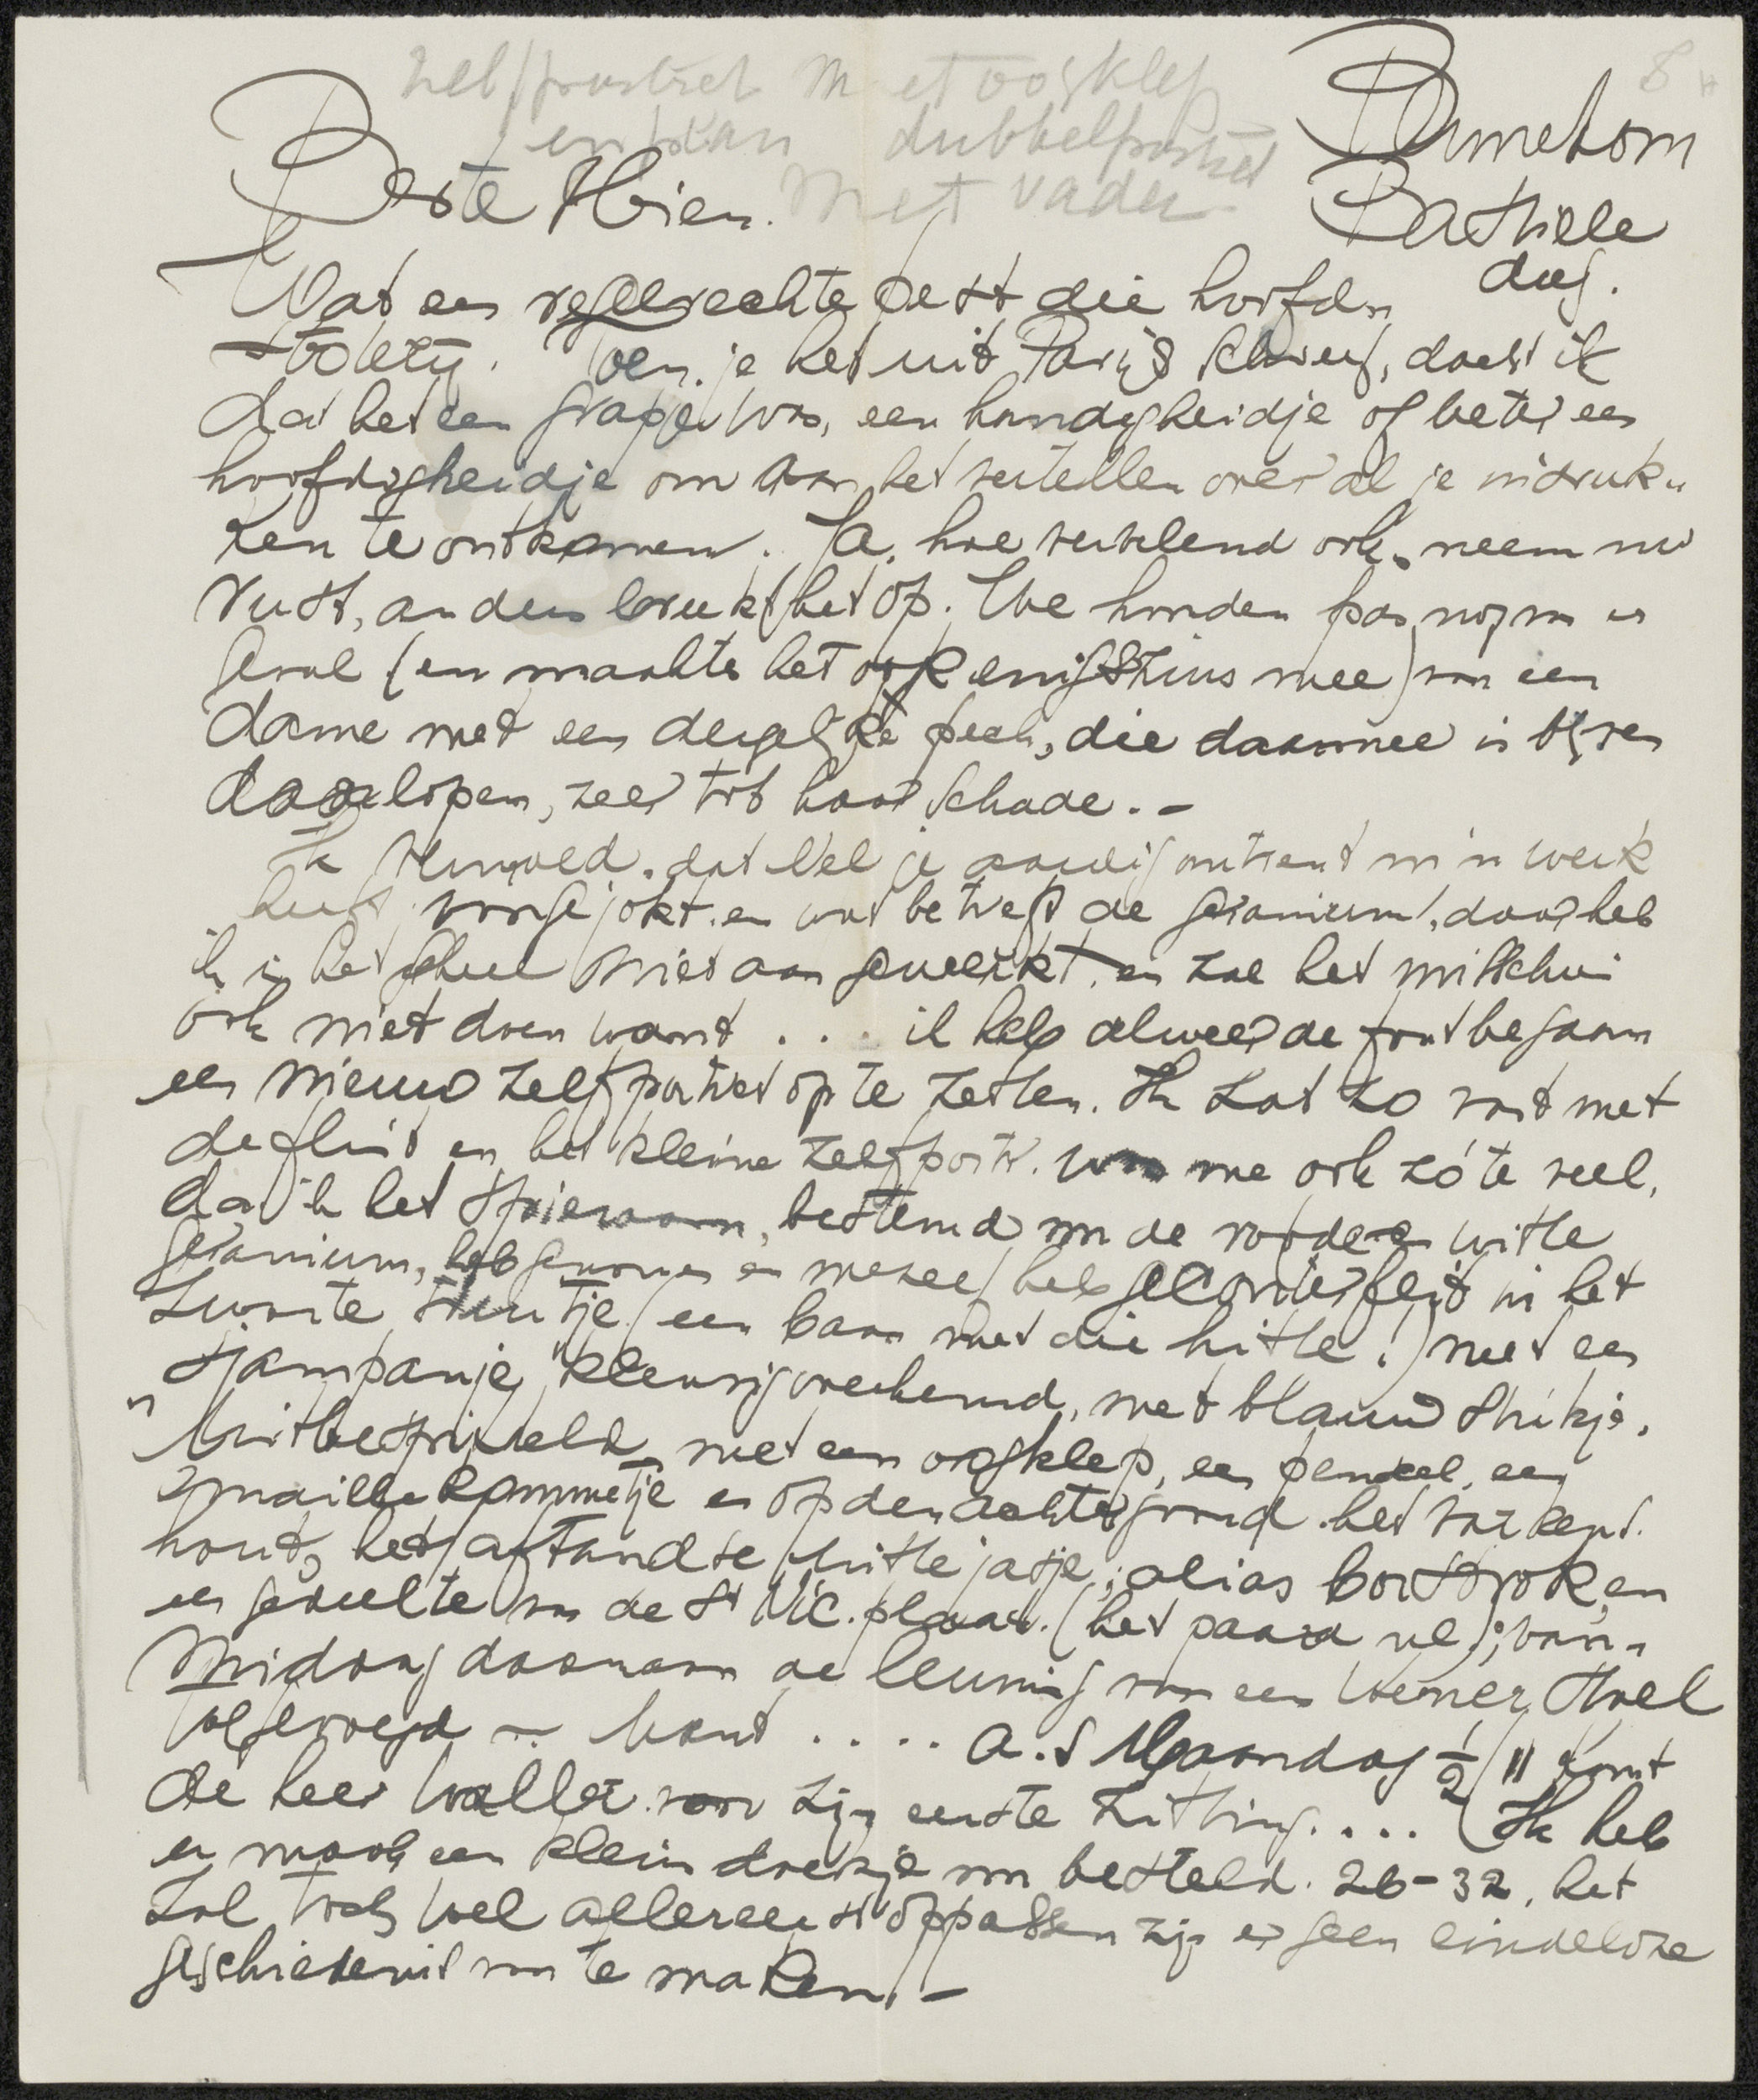 zelfportret met oogklep
en kan dubbelportret
met vader
8
Dumebom
Bathiele
Aug.
Beste Wien.
Wat een regelrechte pest die hoofd-
stoterij. Toen je het uit Parijs schreef, dacht ik
dat het een grapje was, een handigheidje of beter een
hoofdigheidje om aan het vertellen over al je indruk-
ken te ontkomen. Ja, hoe vervelend ook, neem nu
rust, anders breekt het op. We honden pas nog van er
geval (en maakte het ook enigszins mee) van een
dame met een dergelijke pech, die daarmee is blijven
doorlopen, zeer tot haar schade. -
Ik vermoed, dat Nel je aardig omtrent m'n werk
heeft voorgejokt. en wat betreft de geranium, daar heb
ik in het geheel niet aan gewerkt, en zal het misschien
ook niet doen want . . . ik heb alweer de fout begaan
een nieuw zelfportret op te zetten. Ik zat zo vast met
de fluit en het kleine zelfportr. was me ook zó te veel,
dat ik het spieraam, bestemd vn de rode en witte
geranium, heb genomen en mezelf heb geconterfeit in het
zwarte truitje (een baan met die hitte!) met een
"tjampanje" kleurig overhemd, met blauw strikje,
witbespikkeld met een oogklep, een penseel, een
emaille kommetje en op den achtergrond het varkens.
hout, het aftandse witte jasje, alias borstrok, en
een gedeelte van de St Nic. plaat. (het paard nl.); van-
middag daaraan de leuning van een Wener stoel
toegevoegd — Want . . . . a.s Maandag ½ 11 komt
de heer Waller voor zijn eerste zitting. . . . (Ik heb
er maar een klein doekje vn besteld. 26-32, het
zal toch wel allereerst oppassen zijn er geen eindeloze
geschiedenis van te maken. -